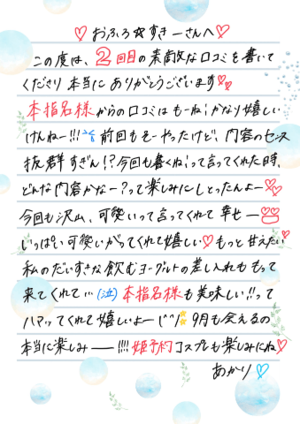 ♡おふろ☆すきーさんへ♡
この度は、2回目の素敵な口コミを書いて
くださり本当にありがとうございます♡♡
本指名様からの口コミはもーね!かなり嬉しい
けんねー!!! 前回もそーやったけど、内容のセンス
抜群すぎん!?今回も書くね!って言ってくれた時、
どんな内容かなー?って楽しみにしとったんよー♡♡
今回も沢山、可愛いって言ってくれて幸せー
いっぱい可愛いがってくれて嬉しい♡もっと甘えたい
私のだいすきな飲むヨーグルトの差し入れももって
来てくれて…(泣)本指名様も美味しい!!って
ハマってくれて嬉しいよー(^^)/ 9月も会えるの
本当に楽しみー!!!!姫予約コスプレも楽しみにね♡
あかり♡